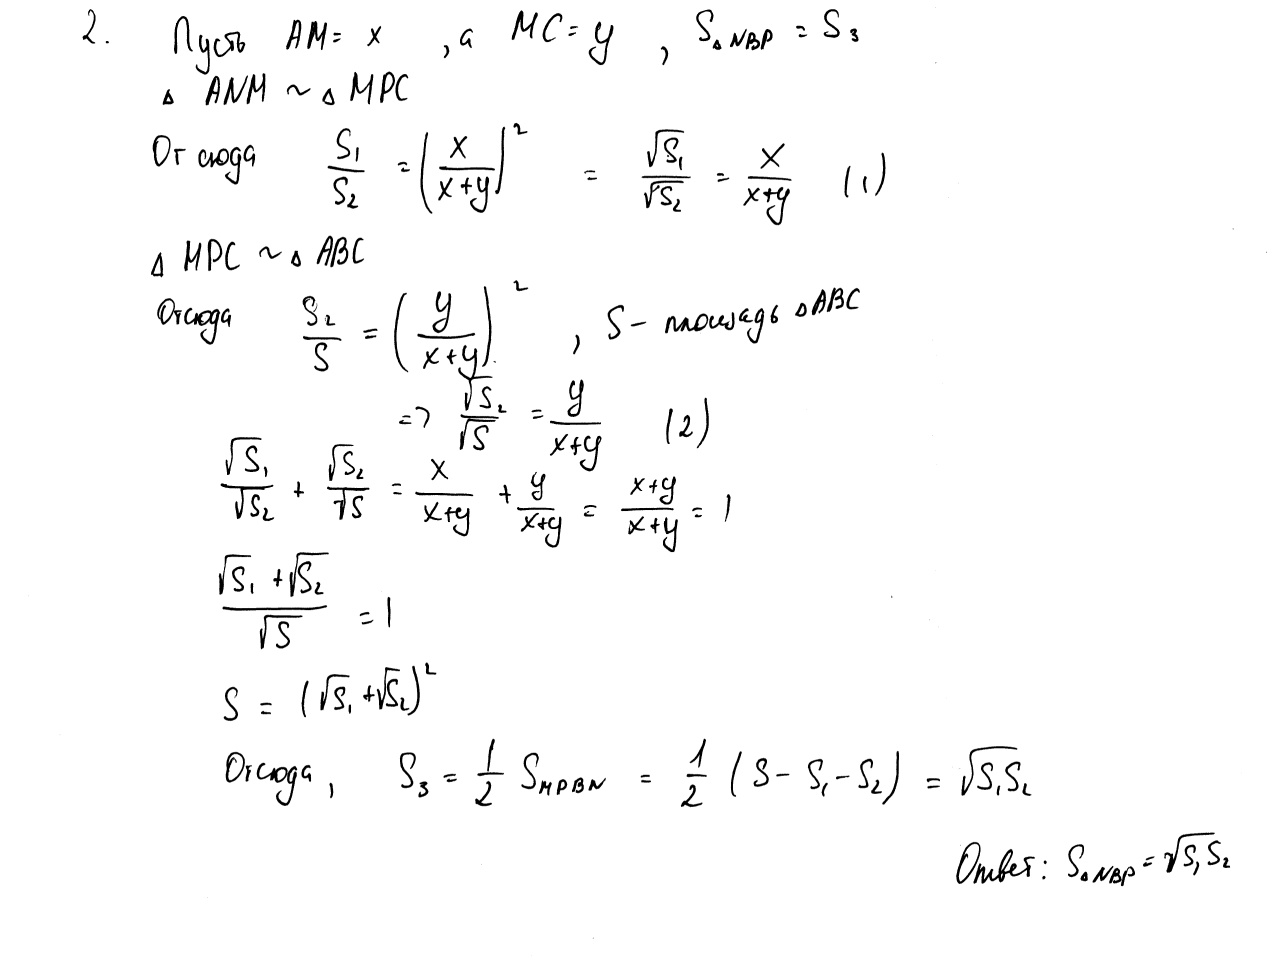 2. Пусть AM = x , а MC = y , S△NBP = S₃
△ ANM ~ △ MPC
Отсюда S₁/S₂ = (x/(x+y))² = √S₁/√S₂ = x/(x+y) (1)
△ MPC ~ △ ABC
Отсюда S₂/S = (y/(x+y))² , S - площадь △ABC
=> √S₂/√S = y/(x+y) (2)
√S₁/√S₂ + √S₂/√S = x/(x+y) + y/(x+y) = (x+y)/(x+y) = 1
(√S₁ + √S₂)/√S = 1
S = (√S₁ + √S₂)²
Отсюда, S₃ = 1/2 S_MPBN = 1/2 (S - S₁ - S₂) = √S₁S₂
Ответ: S△NBP = √S₁S₂